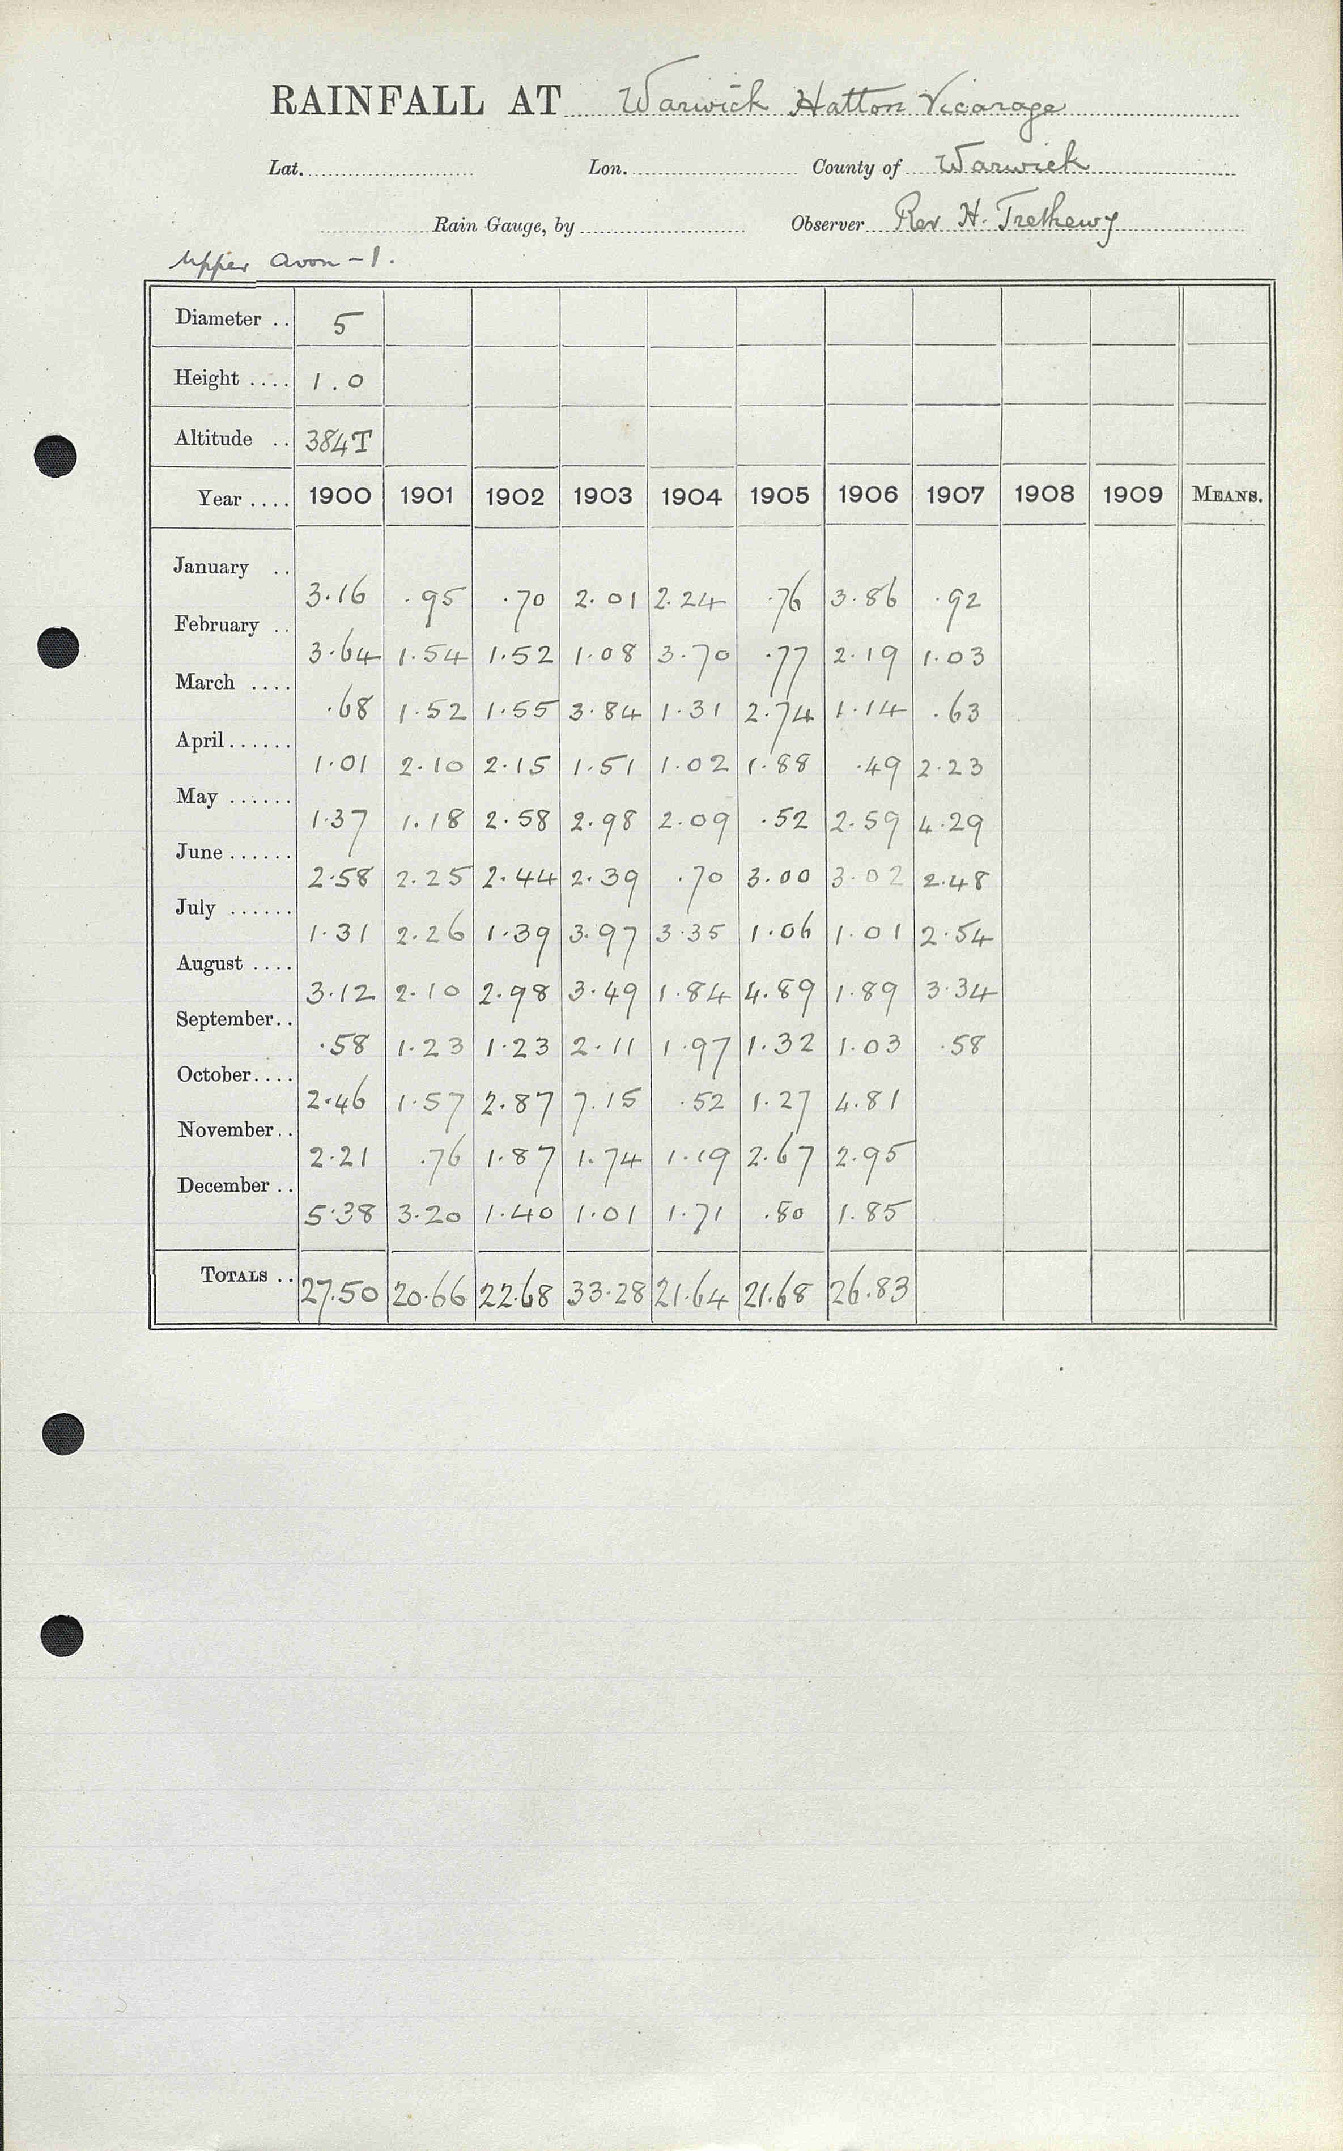 RAINFALL AT Warwick Hatton Vicarage
Lat. Lon. County of Warwick
Rain Gauge, by Observer Rev H. Trethewy
Upper Avon - 1.
Diameter .. 5
Height .... 1.0
Altitude .. 384T
Year .... 1900 1901 1902 1903 1904 1905 1906 1907 1908 1909 MEANS.
January .. 3.16 .95 .70 2.01 2.24 .76 3.86 .92
February .. 3.64 1.54 1.52 1.08 3.70 .77 2.19 1.03
March .... .68 1.52 1.55 3.84 1.31 2.74 1.14 .63
April...... 1.01 2.10 2.15 1.51 1.02 1.88 .49 2.23
May ...... 1.37 1.18 2.58 2.98 2.09 .52 2.59 4.29
June...... 2.58 2.25 2.44 2.39 .70 3.00 3.02 2.48
July ...... 1.31 2.26 1.39 3.97 3.35 1.06 1.01 2.54
August .... 3.12 2.10 2.98 3.49 1.84 4.89 1.89 3.34
September.. .58 1.23 1.23 2.11 1.97 1.32 1.03 .58
October.... 2.46 1.57 2.87 7.15 .52 1.27 4.81
November.. 2.21 .76 1.87 1.74 1.19 2.67 2.95
December .. 5.38 3.20 1.40 1.01 1.71 .80 1.85
TOTALS .. 27.50 20.66 22.68 33.28 21.64 21.68 26.83